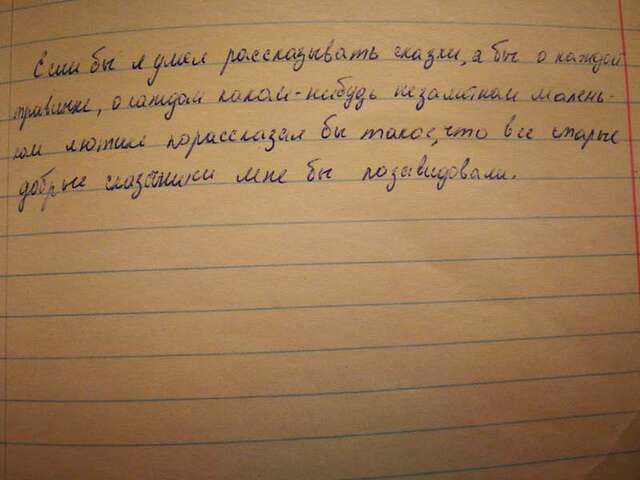 Если бы я умел рассказывать сказки, я бы о каждой
травинке, о каждом каком-нибудь незаметном малень-
ком лютике порассказал бы такое, что все старые
добрые сказочники мне бы позавидовали.